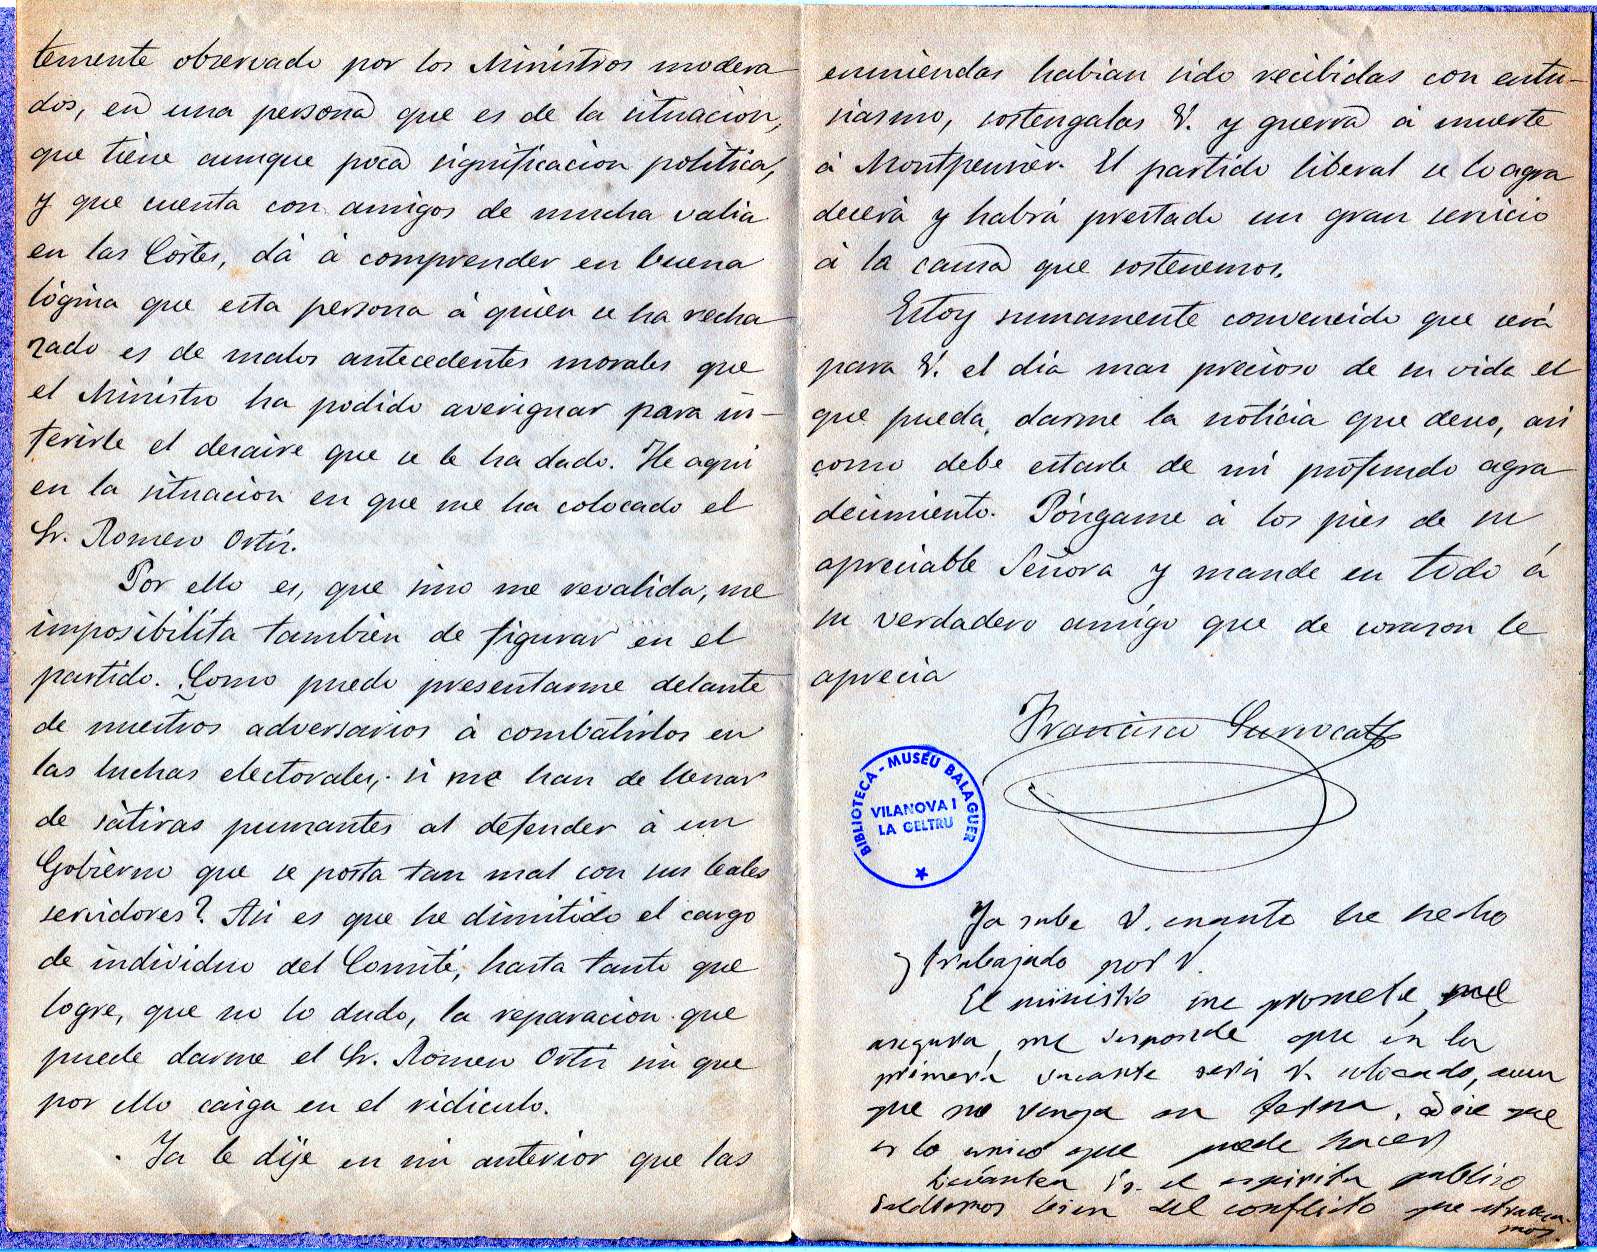 temente observado por los Ministros modera
dos, en una persona que es de la situacion,
que tiene aunque poca significacion politica,
y que cuenta con amigos de mucha valia
en las Córtes, dá á comprender en buena
lógica que esta persona á quien se ha recha
zado es de malos antecedentes morales que
el Ministro ha podido averiguar para in-
ferirle el desaire que se le ha dado. He aqui
en la situacion en que me ha colocado el
Sr. Romero Ortiz.
Por ello es, que sino me revalida, me
imposibilita tambien de figurar en el
partido. Como puedo presentarme delante
de nuestros adversarios á combatirlos en
las luchas electorales, si me han de llenar
de sátiras punzantes al defender á un
Gobierno que se porta tan mal con sus leales
servidores? Asi es que he dimitido el cargo
de individuo del Comité, hasta tanto que
logre, que no lo dudo, la reparacion que
puede darme el Sr. Romero Ortiz sin que
por ello caiga en el ridiculo.
Ya le dije en mi anterior que las
enmiendas habian sido recibidas con entu-
siasmo, sostengalas V. y guerra á muerte
á Montpensier. El partido liberal se lo agra
decerá y habrá prestado un gran servicio
á la causa que sostenemos.
Estoy sumamente convencido que será
para V. el dia mas precioso de su vida el
que pueda darme la noticia que deseo, asi
como debe estarle de mi profundo agra
decimiento. Póngame á los pies de su
apreciable Señora y mande en todo á
su verdadero amigo que de corazon le
aprecia
Francisco
BIBLIOTECA - MUSEU BALAGUER
VILANOVA I
LA GELTRU
Ya sabe V. cuanto he hecho
y trabajado por V.
El ministro me promete, me
asegura, me responde que en la
primera vacante será V. colocado, aun
que no venga en terna. Dice que
es lo unico que puede hacer
Levanten Vs. el espiritu publico
Saldremos bien del conflicto que atravesa-
mos.